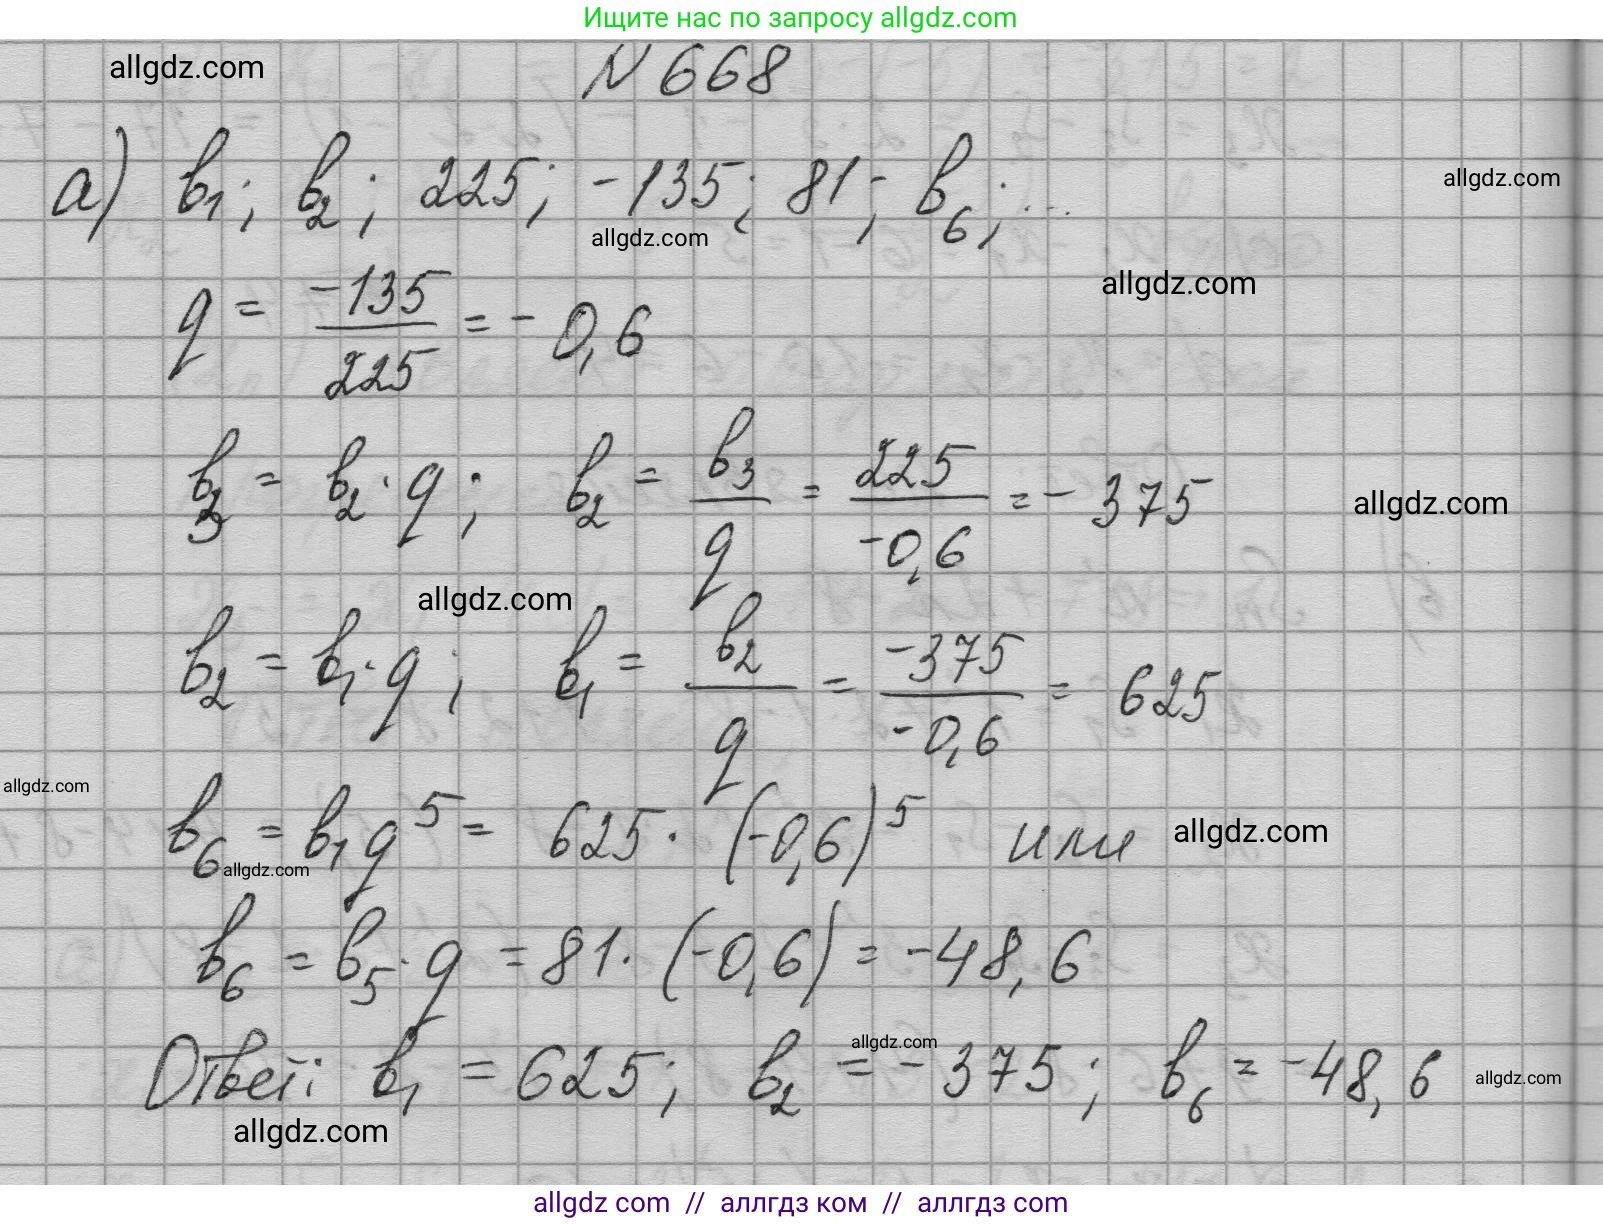 Ищите нас по запросу allgdz.com
allgdz.com
N 668
а) b₁; b₂; 225; -135; 81; b₆; ...
allgdz.com
allgdz.com
allgdz.com
q = -135/225 = -0,6
b₃ = b₂ · q; b₂ = b₃/q = 225/-0,6 = -375
allgdz.com
allgdz.com
b₂ = b₁ · q; b₁ = b₂/q = -375/-0,6 = 625
allgdz.com
b₆ = b₁q⁵ = 625 · (-0,6)⁵ или
allgdz.com
allgdz.com
b₆ = b₅ · q = 81 · (-0,6) = -48,6
allgdz.com
Ответ: b₁ = 625; b₂ = -375; b₆ = -48,6
allgdz.com
allgdz.com
allgdz com // аллгдз ком // аллгдз com